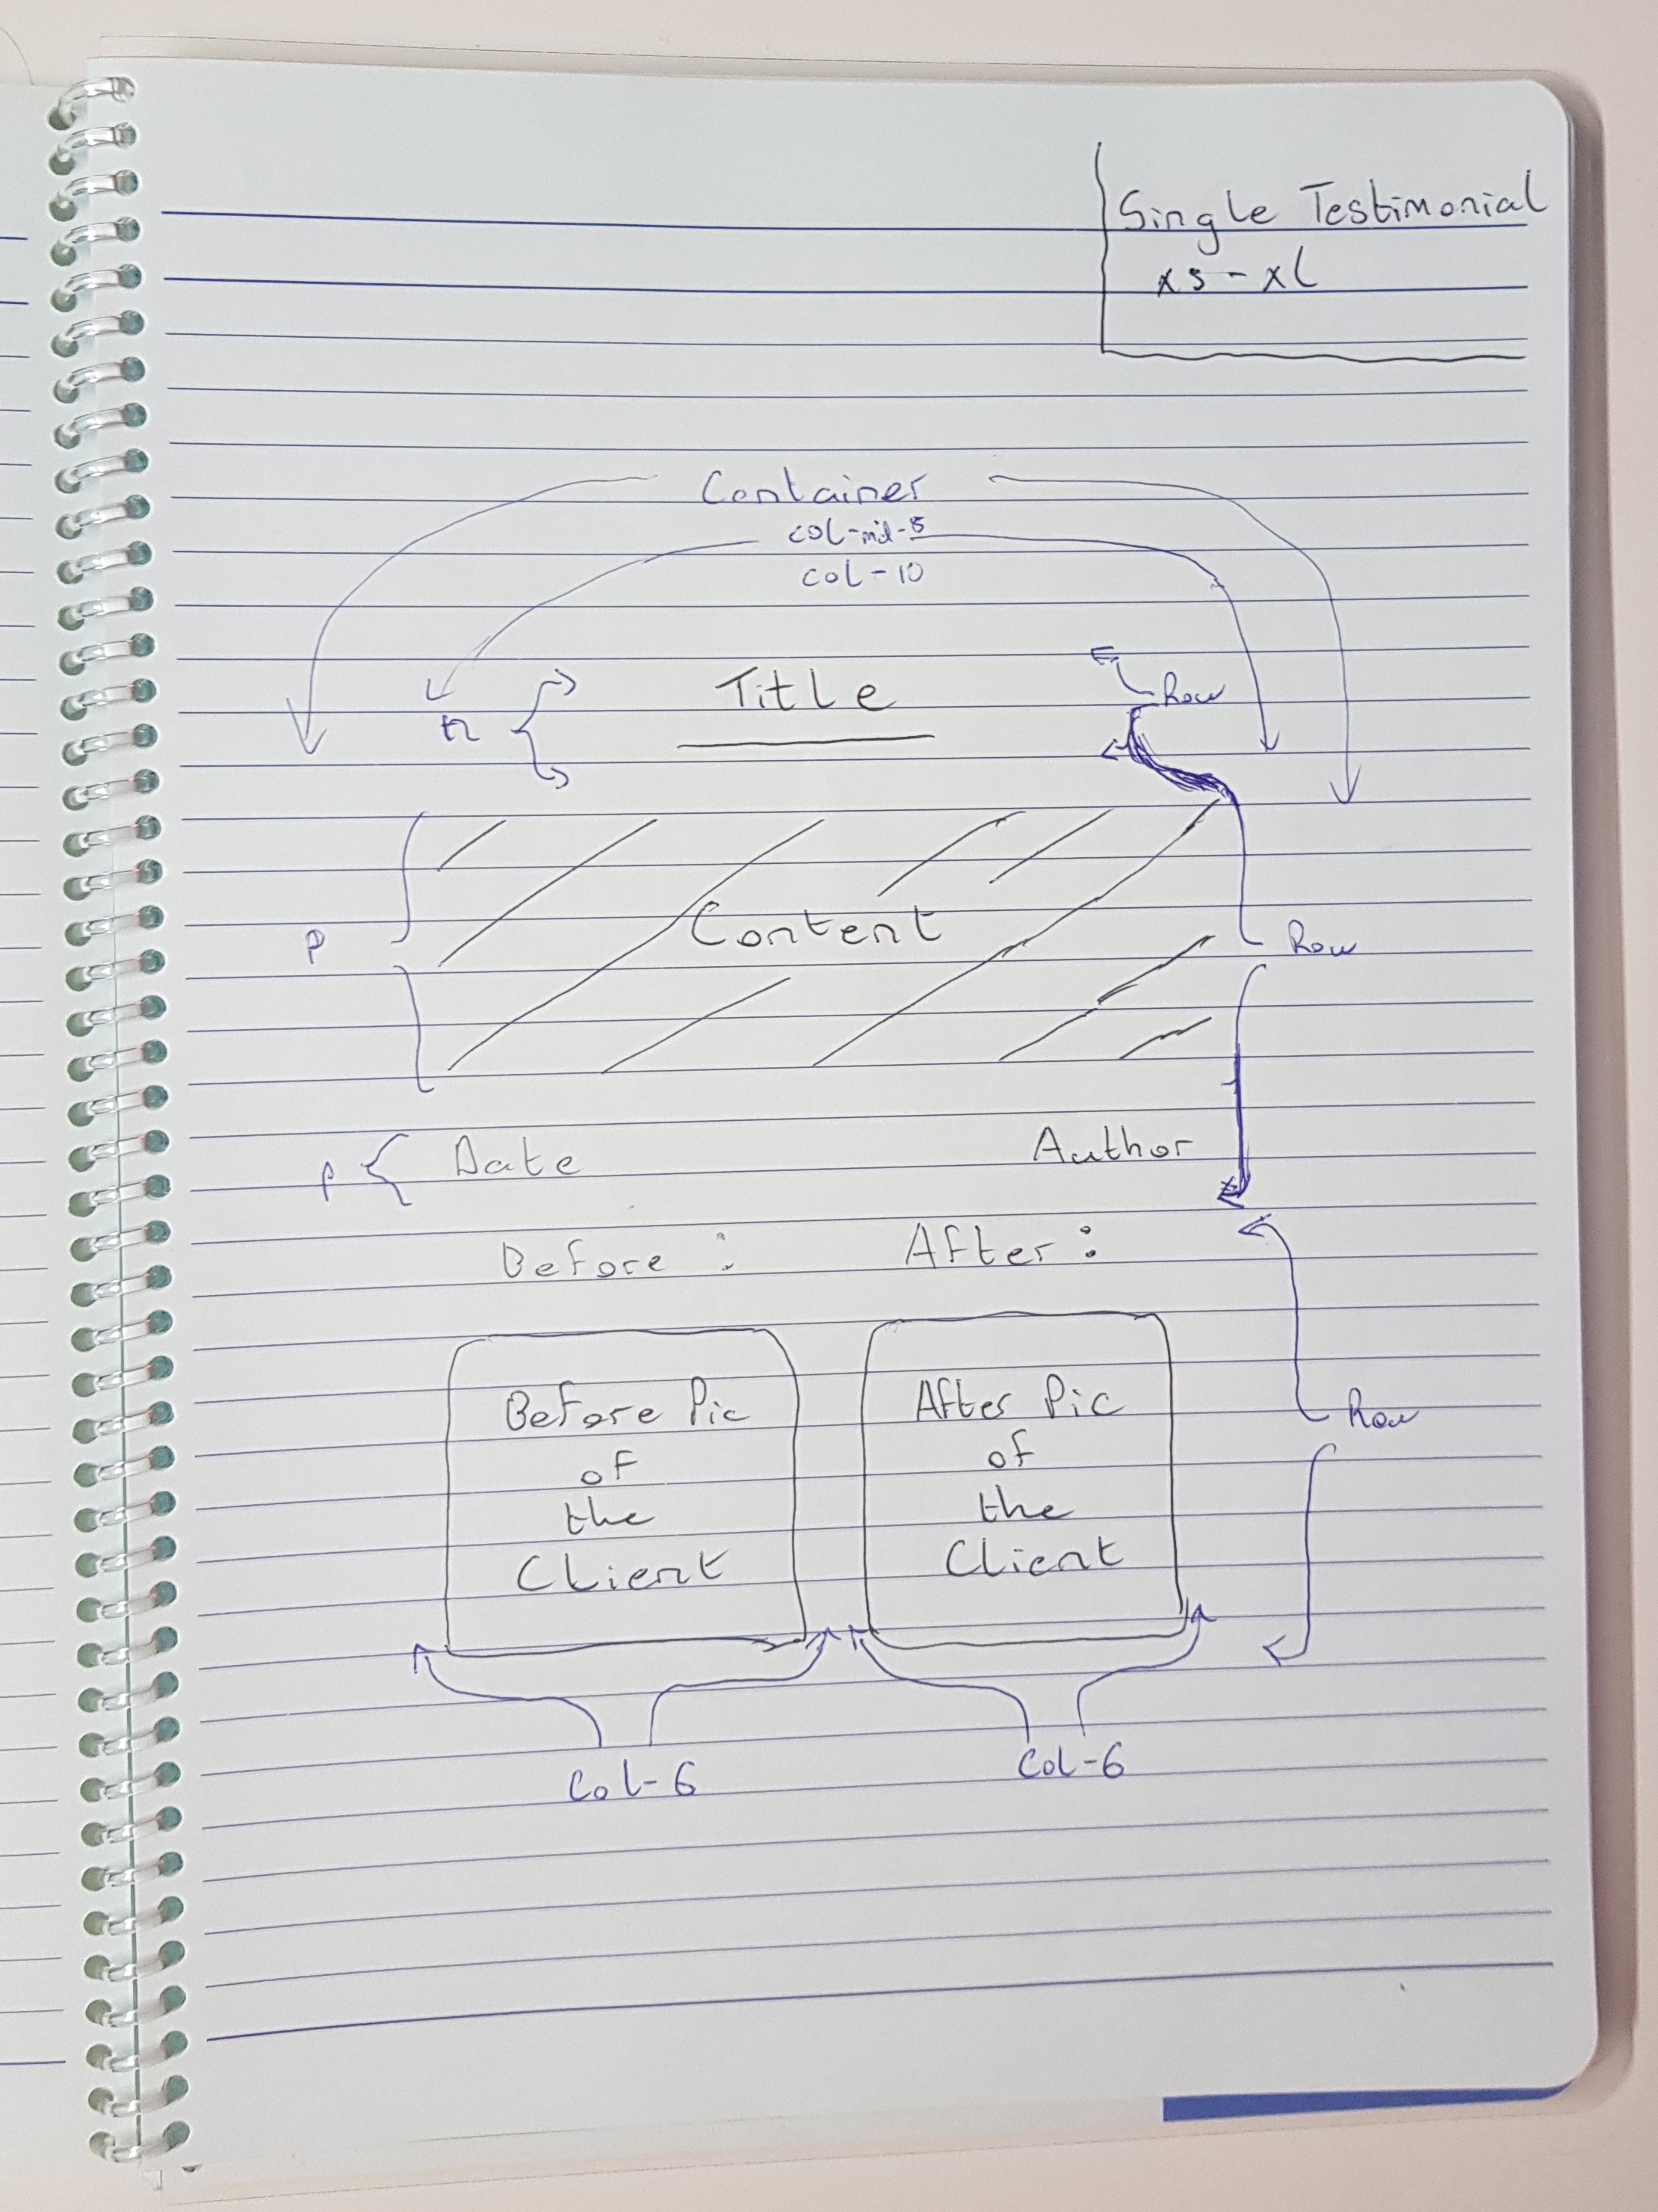 Single Testimonial
xs - xl
Container
col-md-8
col-10
Title
Row
Content
P
Row
P
Date
Author
Before :
After :
Before Pic
of
the
Client
After Pic
of
the
Client
Row
Col-6
Col-6